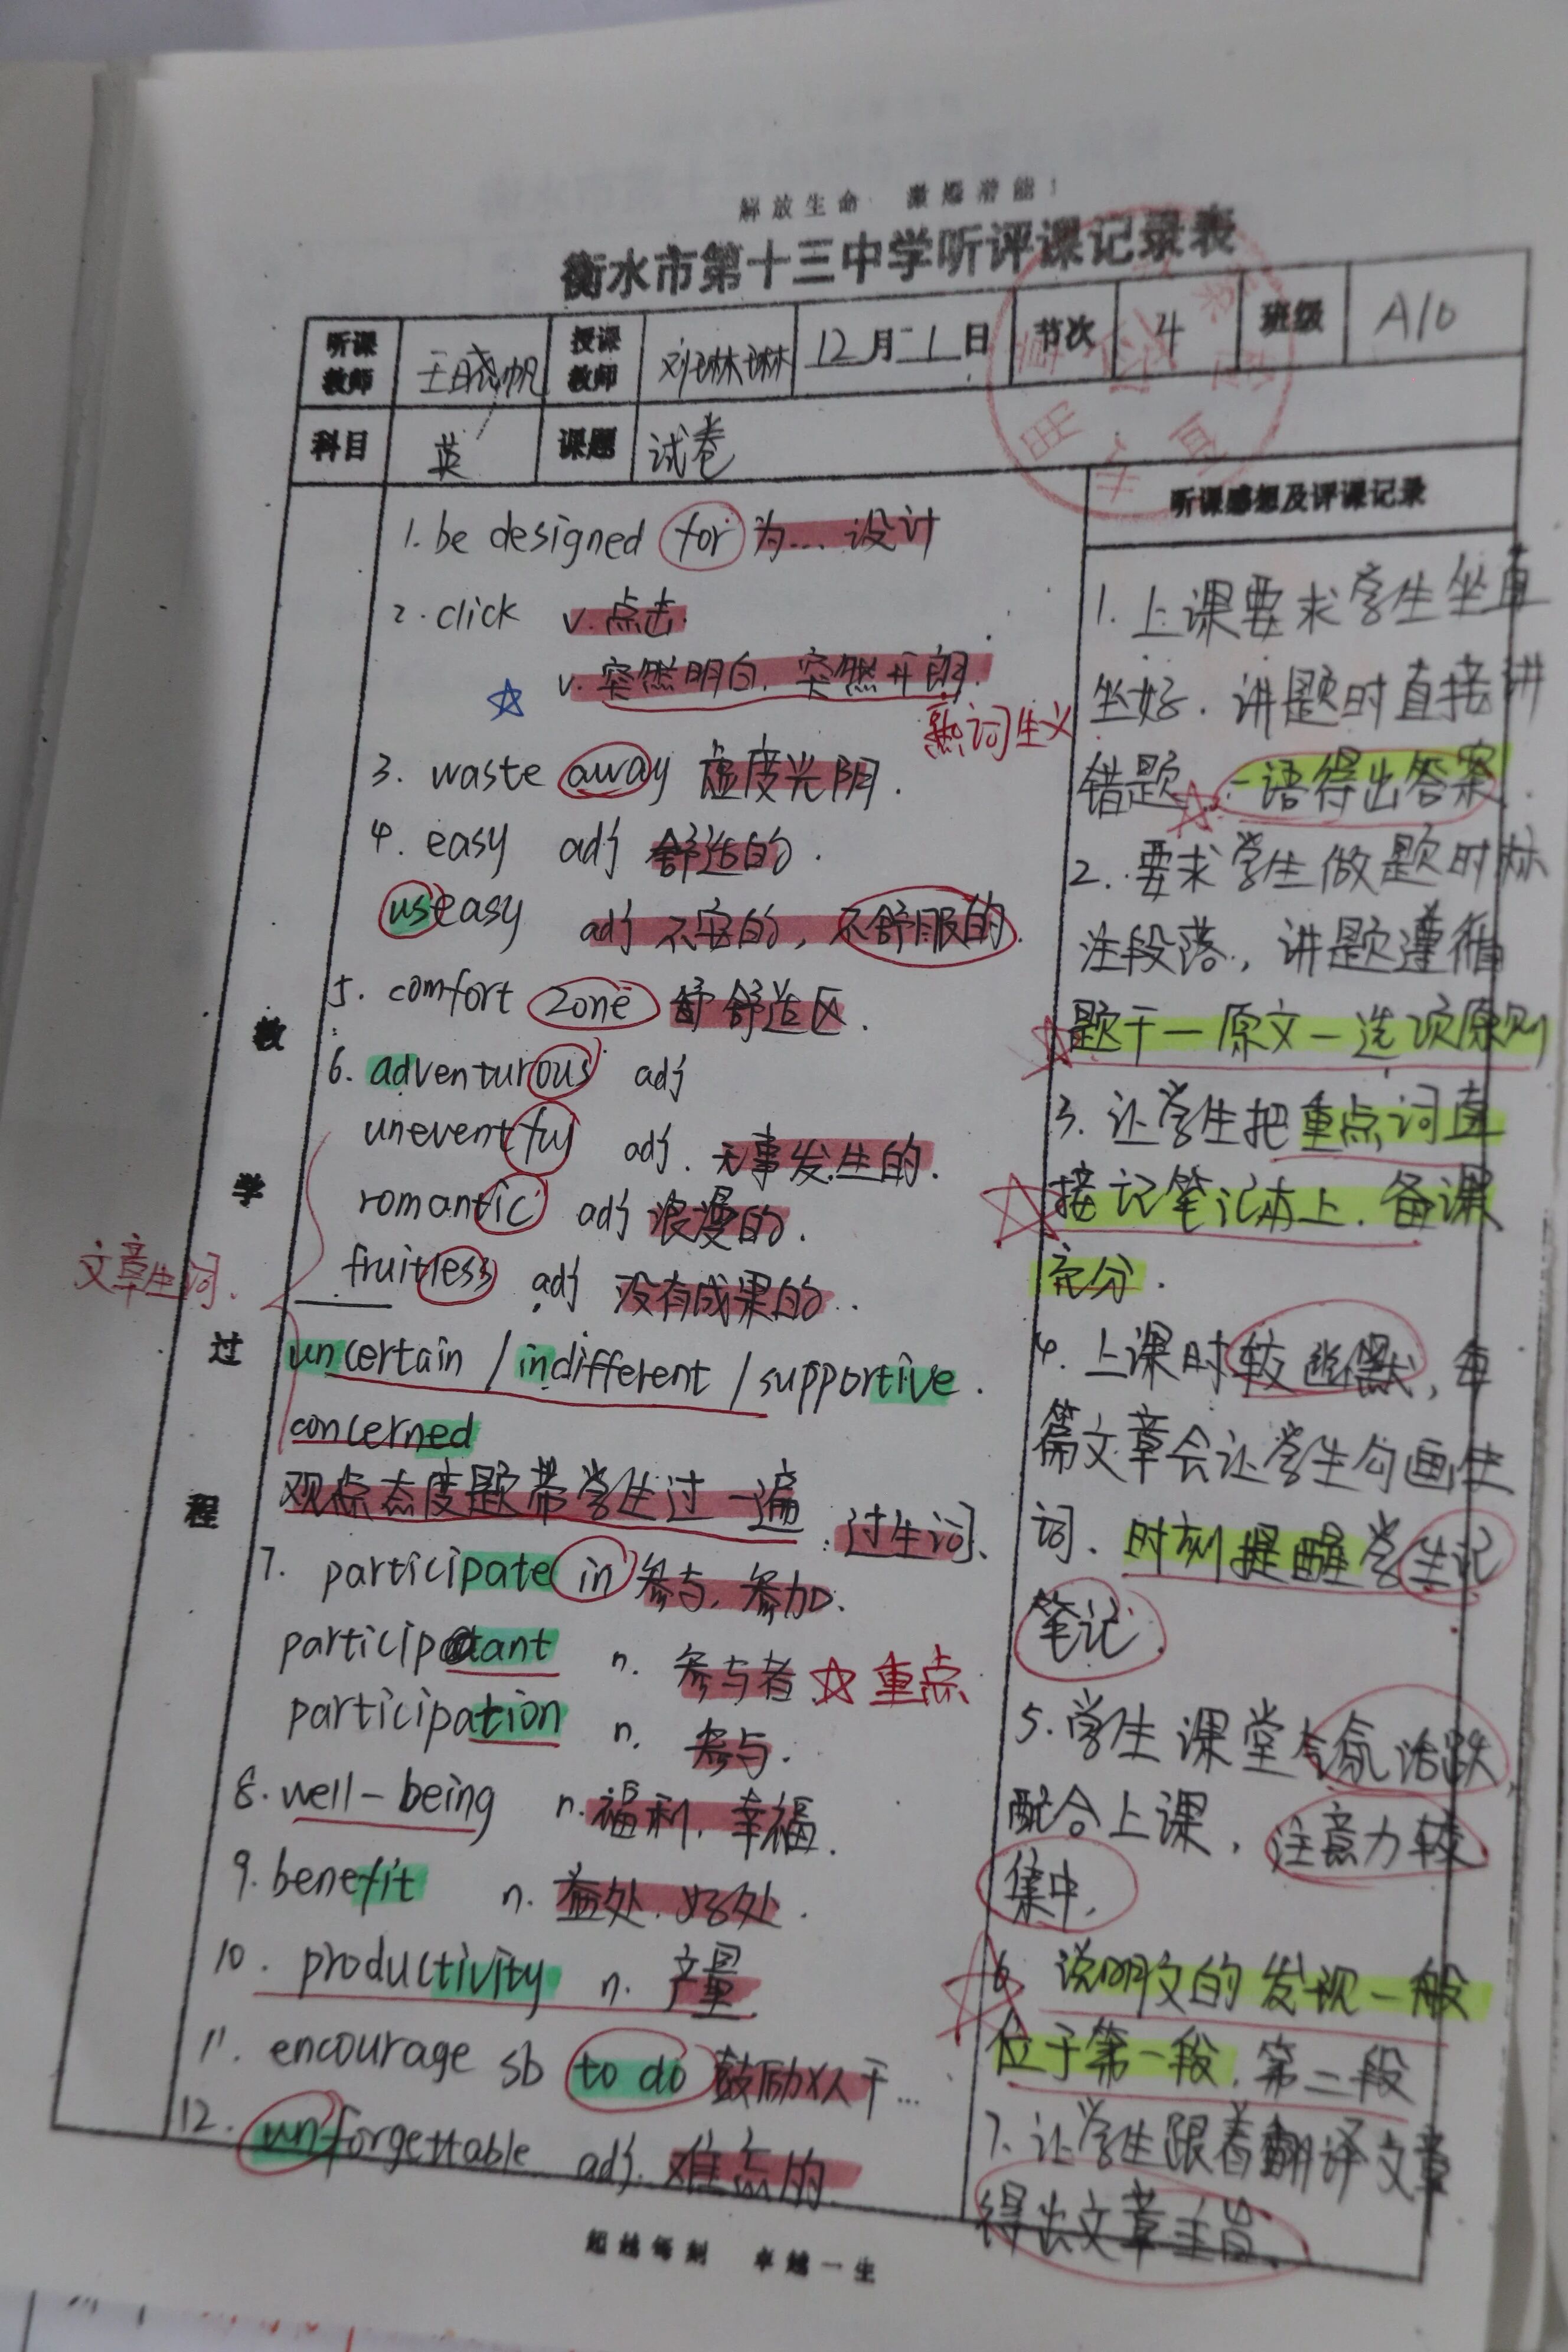 解放生命 激爆潜能！
衡水市第十三中学听评课记录表
听课教师 王晓帆 授课教师 刘琳琳 12月21日 节次 4 班级 A10
科目 英 课题 试卷
教学过程
1. be designed for 为... 设计
2. click v. 点击
v. 突然明白，突然开朗.
熟词生义
3. waste away 虚度光阴.
4. easy adj 舒适的.
useasy adj 不安的，不舒服的.
5. comfort zone 舒适区.
6. adventurous adj
uneventful adj. 无事发生的.
romantic adj 浪漫的.
fruitless adj 没有成果的.
文章生词.
uncertain / indifferent / supportive.
concerned
观点态度题带学生过一遍. 过生词、
7. participate in 参与，参加.
participant n. 参与者 重点
participation n. 参与.
8. well-being n. 福利，幸福.
9. benefit n. 益处，好处.
10. productivity n. 产量
11. encourage sb to do 鼓励某人干...
12. un-forgettable adj. 难忘的.
听课感想及评课记录
1. 上课要求学生坐直
坐好. 讲题时直接讲
错题. 一语得出答案.
2. 要求学生做题时标
注段落，讲题遵循
题干一原文一选项原则
3. 让学生把重点词直
接记笔记本上. 备课
充分.
4. 上课时较幽默，每
篇文章会让学生勾画生
词、时刻提醒学生记
笔记.
5. 学生课堂气氛活跃，
配合上课，注意力较
集中.
6. 说明文的发现一般
位于第一段，第二段
7. 让学生跟着翻译文章
得出文章主旨.
超越每刻 卓越一生